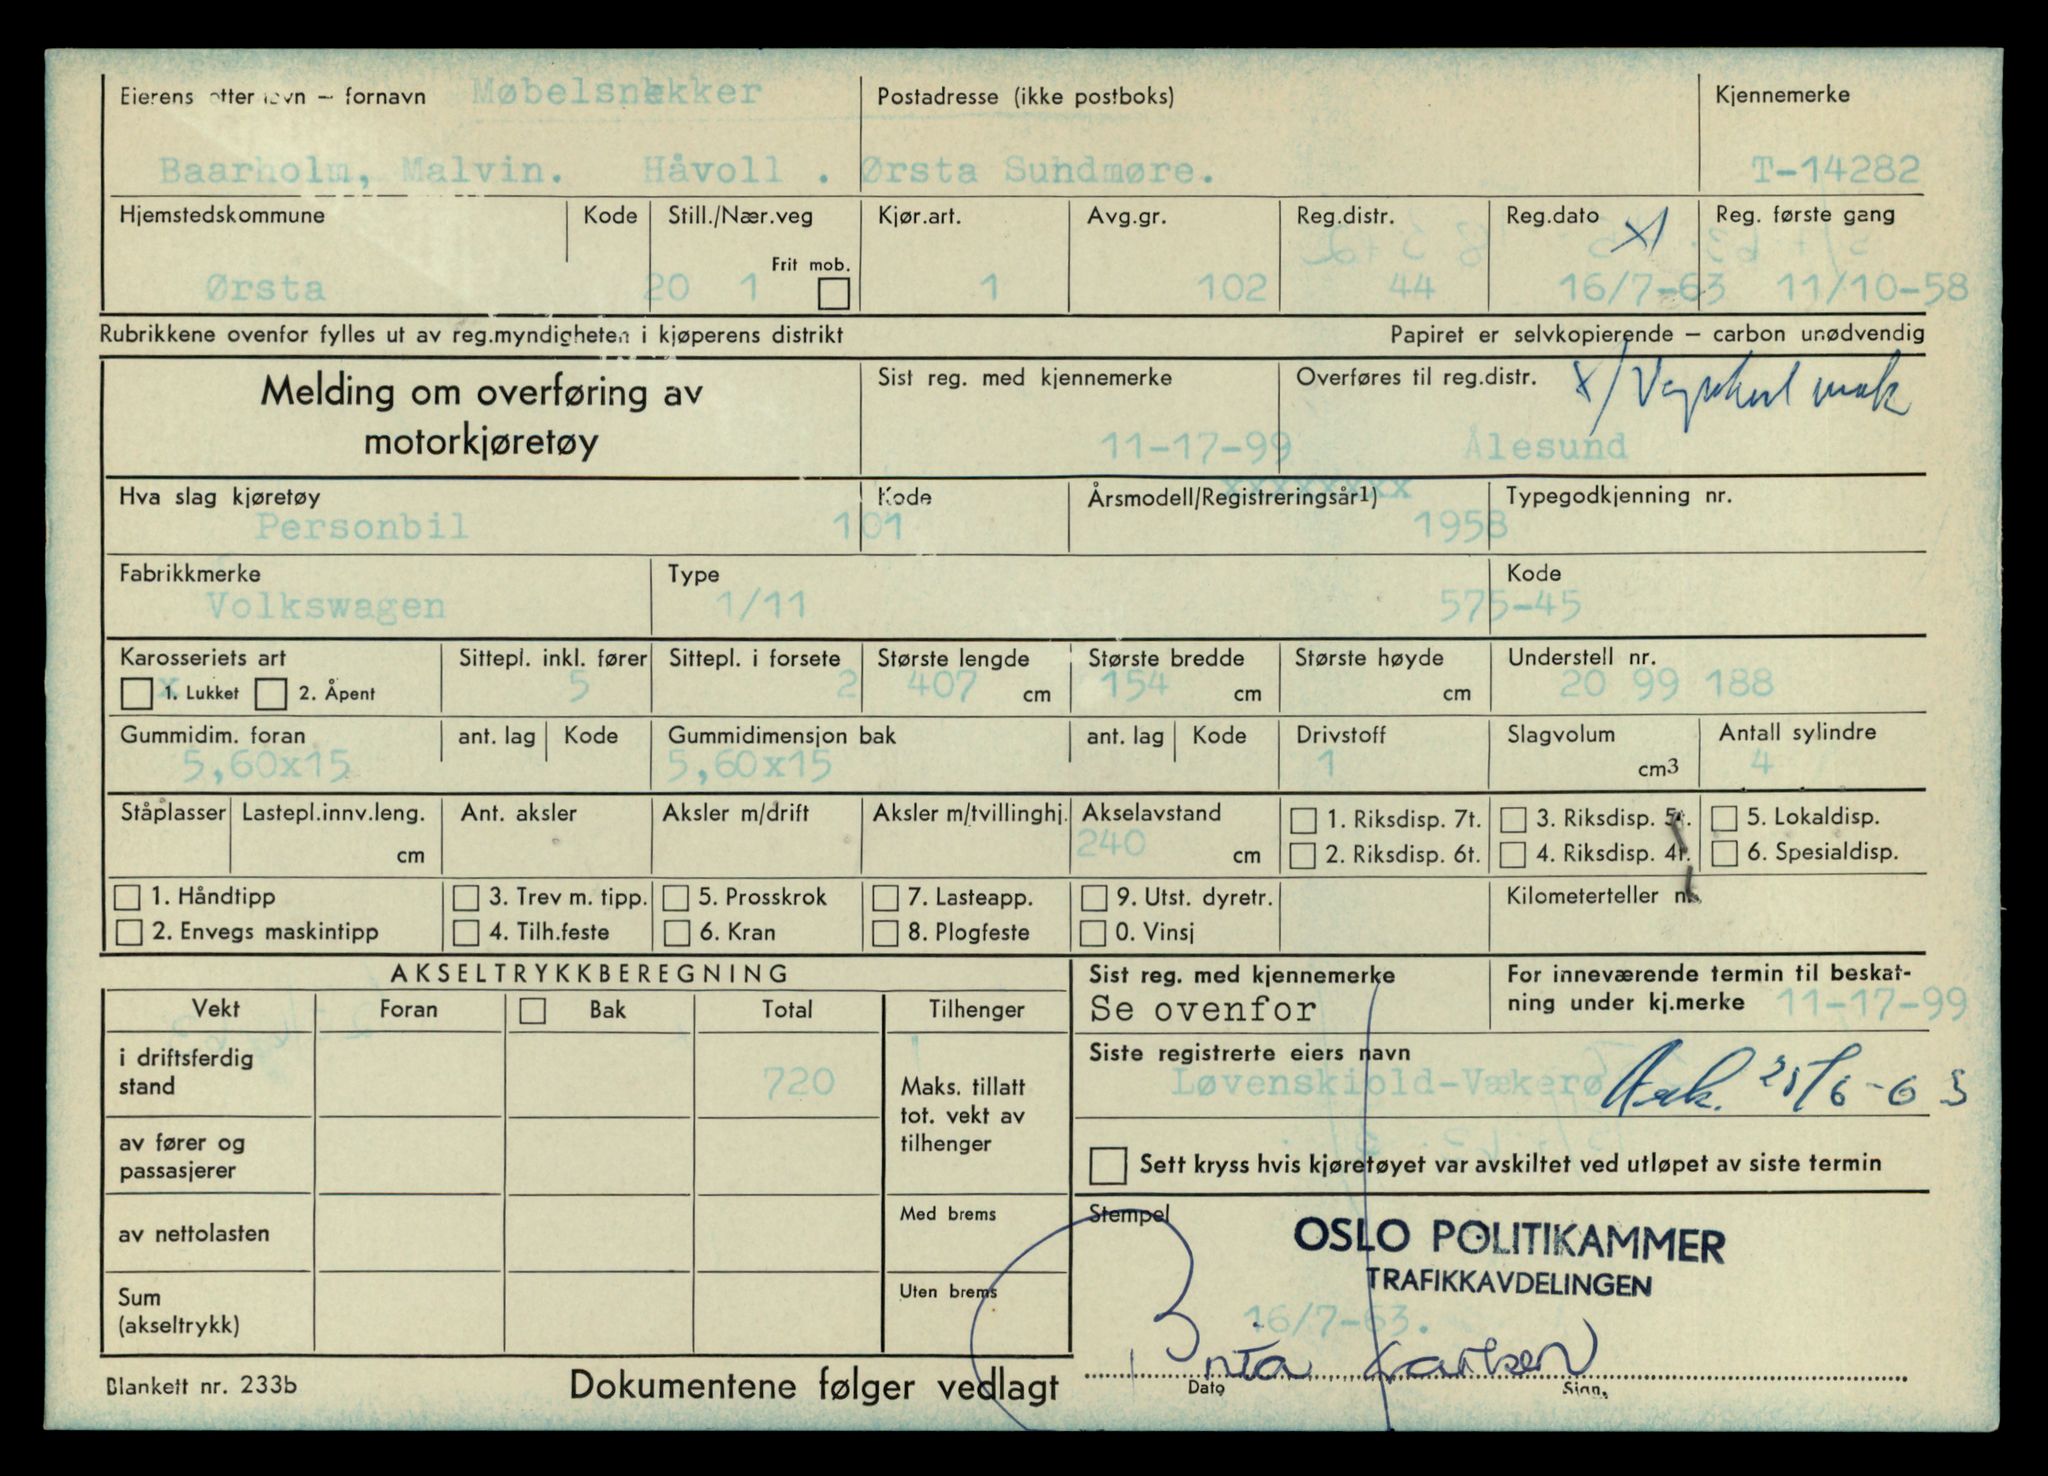 Eierens etternavn – fornavn Møbelsnekker Postadresse (ikke postboks) Kjennemerke
Baarholm, Malvin. Håvoll . Ørsta Sundmøre. T-14282
Hjemstedskommune Kode Still./Nær.veg Kjør.art. Avg.gr. Reg.distr. Reg.dato x/ Reg. første gang
Frit mob.
Ørsta 20 1 1 102 44 16/7-63 11/10-58
Rubrikkene ovenfor fylles ut av reg.myndigheten i kjøperens distrikt Papiret er selvkopierende – carbon unødvendig
Melding om overføring av motorkjøretøy
Sist reg. med kjennemerke Overføres til reg.distr. x/
11-17-99 Ålesund
xxxxxxxx
Hva slag kjøretøy Kode Årsmodell/Registreringsår1) Typegodkjenning nr.
Personbil 101 1958
Fabrikkmerke Type Kode
Volkswagen 1/11 575-45
Karosseriets art Sittepl. inkl. fører Sittepl. i forsete Største lengde Største bredde Største høyde Understell nr.
x 1. Lukket 2. Åpent 5 2 407 cm 154 cm cm 20 99 188
Gummidim. foran ant. lag Kode Gummidimensjon bak ant. lag Kode Drivstoff Slagvolum Antall sylindre
5,60x15 5,60x15 1 cm3 4
Ståplasser Lastepl.innv.leng. Ant. aksler Aksler m/drift Aksler m/tvillinghj. Akselavstand 1. Riksdisp. 7t. 3. Riksdisp. 5t. 5. Lokaldisp.
cm 240 cm 2. Riksdisp. 6t. 4. Riksdisp. 4t. 6. Spesialdisp.
1. Håndtipp 3. Trev m. tipp. 5. Prosskrok 7. Lasteapp. 9. Utst. dyretr. Kilometerteller nr.
2. Envegs maskintipp 4. Tilh.feste 6. Kran 8. Plogfeste 0. Vinsj
AKSELTRYKKBEREGNING
Vekt Foran Bak Total Tilhenger
i driftsferdig stand 720 Maks. tillatt tot. vekt av tilhenger
av fører og passasjerer
av nettolasten Med brems
Sum (akseltrykk) Uten brems
Sist reg. med kjennemerke For inneværende termin til beskat-
Se ovenfor ning under kj.merke 11-17-99
Siste registrerte eiers navn
Løvenskiold-Vækerø 25/6-63
Sett kryss hvis kjøretøyet var avskiltet ved utløpet av siste termin
Stempel OSLO POLITIKAMMER
TRAFIKKAVDELINGEN
16/7-63.
Dato Sign.
Blankett nr. 233b Dokumentene følger vedlagt